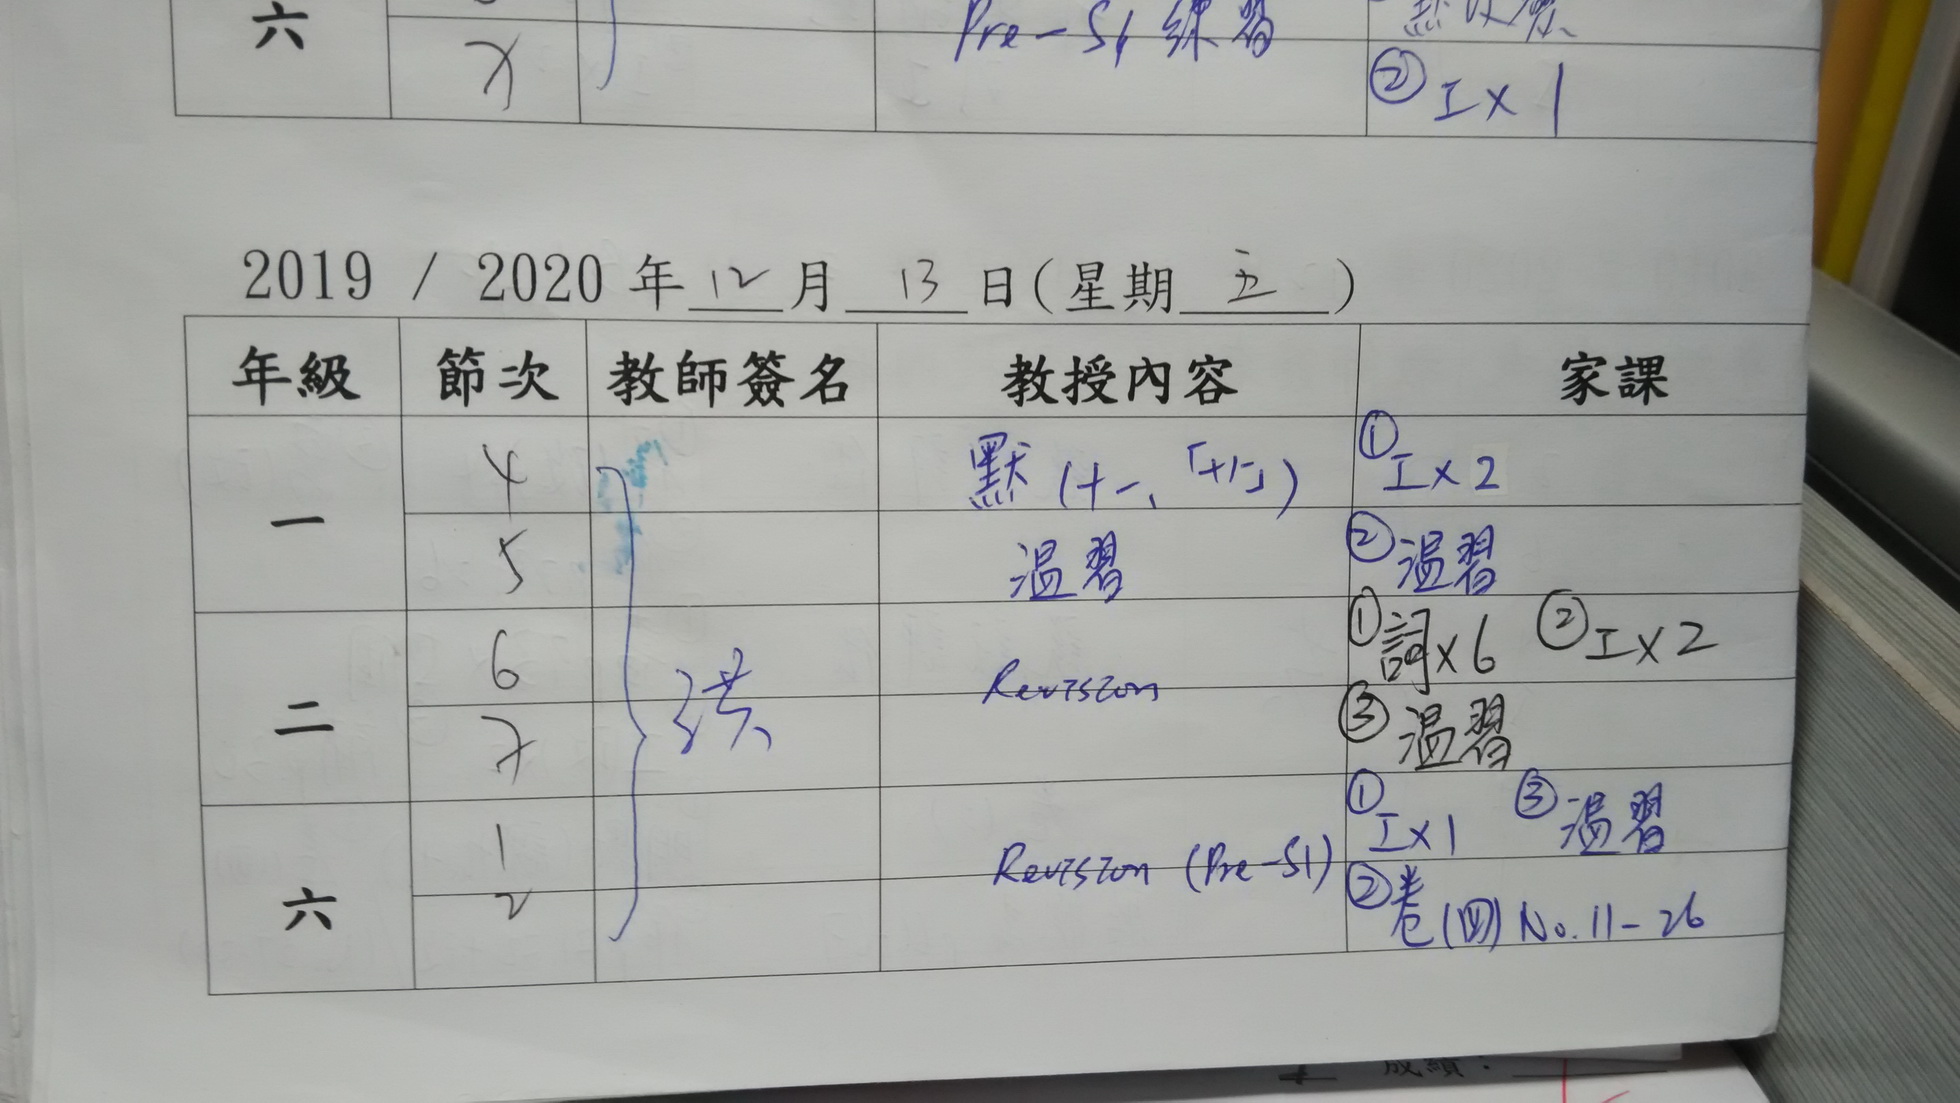 六
Pre-S1 練習
7
② I×1
2019 / 2020 年 12 月 13 日(星期 五 )
年級 節次 教師簽名 教授內容 家課
一 4 默 (十一、「十二」) ① I×2
5 温習 ② 温習
二 6 Revision ① 詞×6 ② I×2
7 ③ 温習
六 1 Revision (Pre-S1) ① I×1 ③ 温習
2 ② 卷(四) No.11-26
成績：